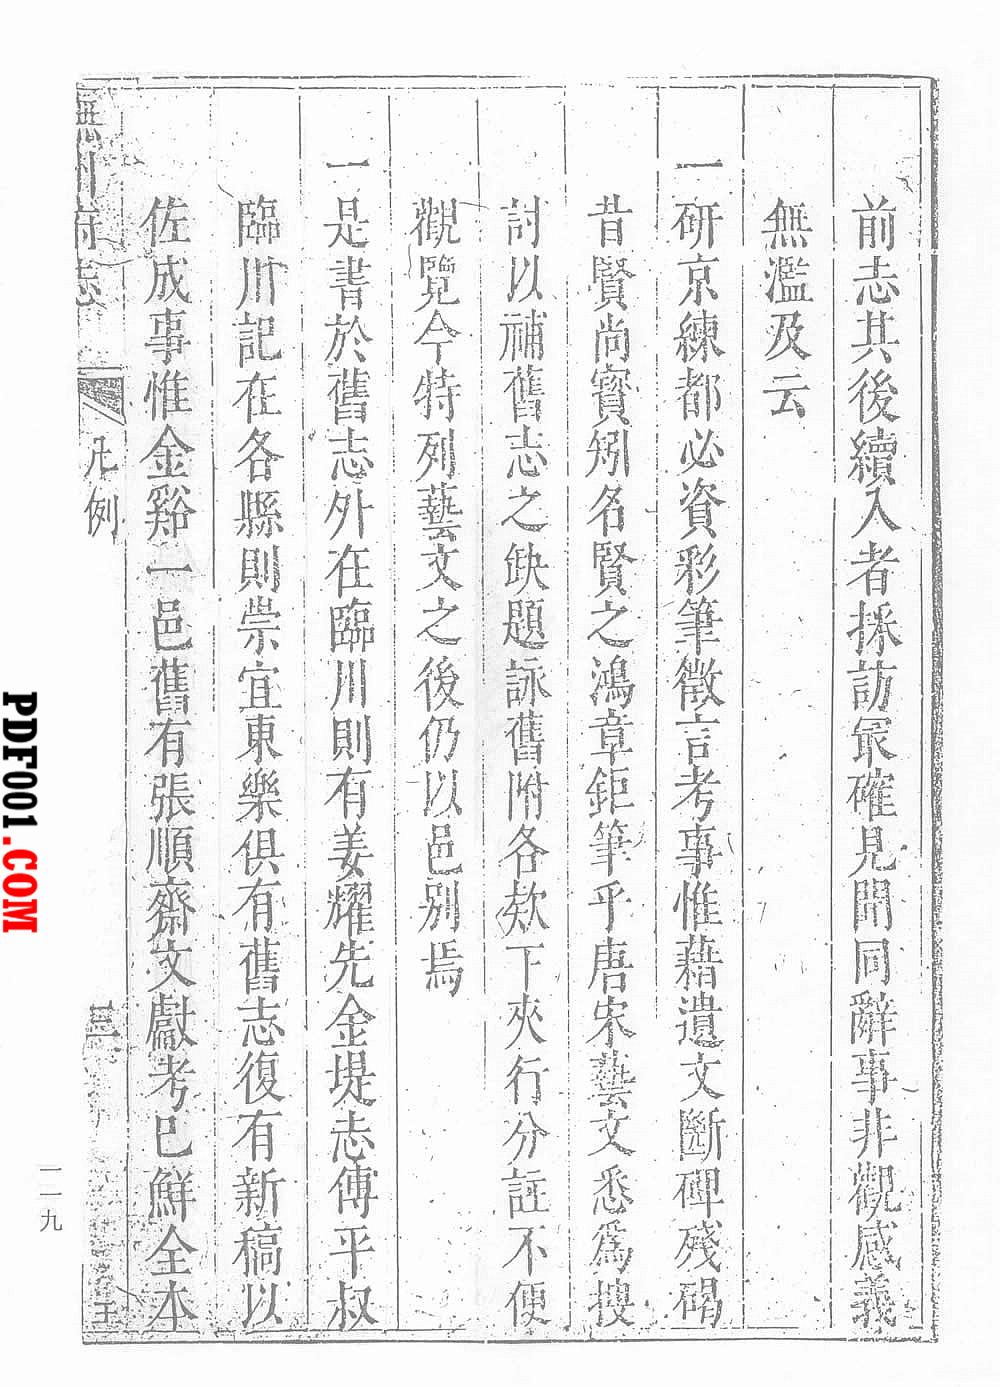 前志其後續入者採訪最確見聞同辭事非觀感義
無濫及云
一研京練都必資彩筆徵言考事惟藉遺文斷碑殘碣
昔賢尚寶矧名賢之鴻章鉅筆乎唐宋藝文悉爲搜
討以補舊志之缺題詠舊附各欵下夾行分註不便
觀覽今特列藝文之後仍以邑別焉
一是書於舊志外在臨川則有姜耀先金堤志傅平叔
臨川記在各縣則崇宜東樂俱有舊志復有新稿以
佐成事惟金谿一邑舊有張順齋文獻考已鮮全本
凡例
三
一一九
PDF001.COM